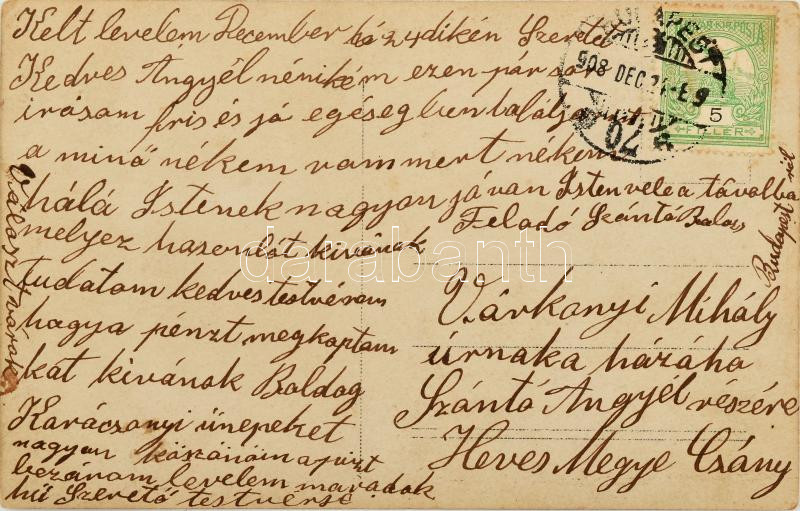 Kelt levelem December hó 24dikén Szerda
Kedves Angyél nénikém ezen pár sor
irásam fris és jó egéségben talalja
a minő nékem van mert nékem
hálá Istenek nagyon jó van Isten vele a távolba
melyez hasonlót kivánok
Feladó Szántó Balas
tudatom kedves testvérem
hogya pénzt megkaptam
kat kivánok Boldog
Karácsonyi ünepeket
nagyon köszönöm a pizt
bezárom levelem maradok
hű Szerető testvérse
Választ várok
Budapest ről
Várkonyi Mihály
úrnaka házáha
Szántó Angyél részére
Heves Megye Csány
BUDAPEST
908 DEC 24
MAGYAR KIR. POSTA
5
FILLÉR
darabanth